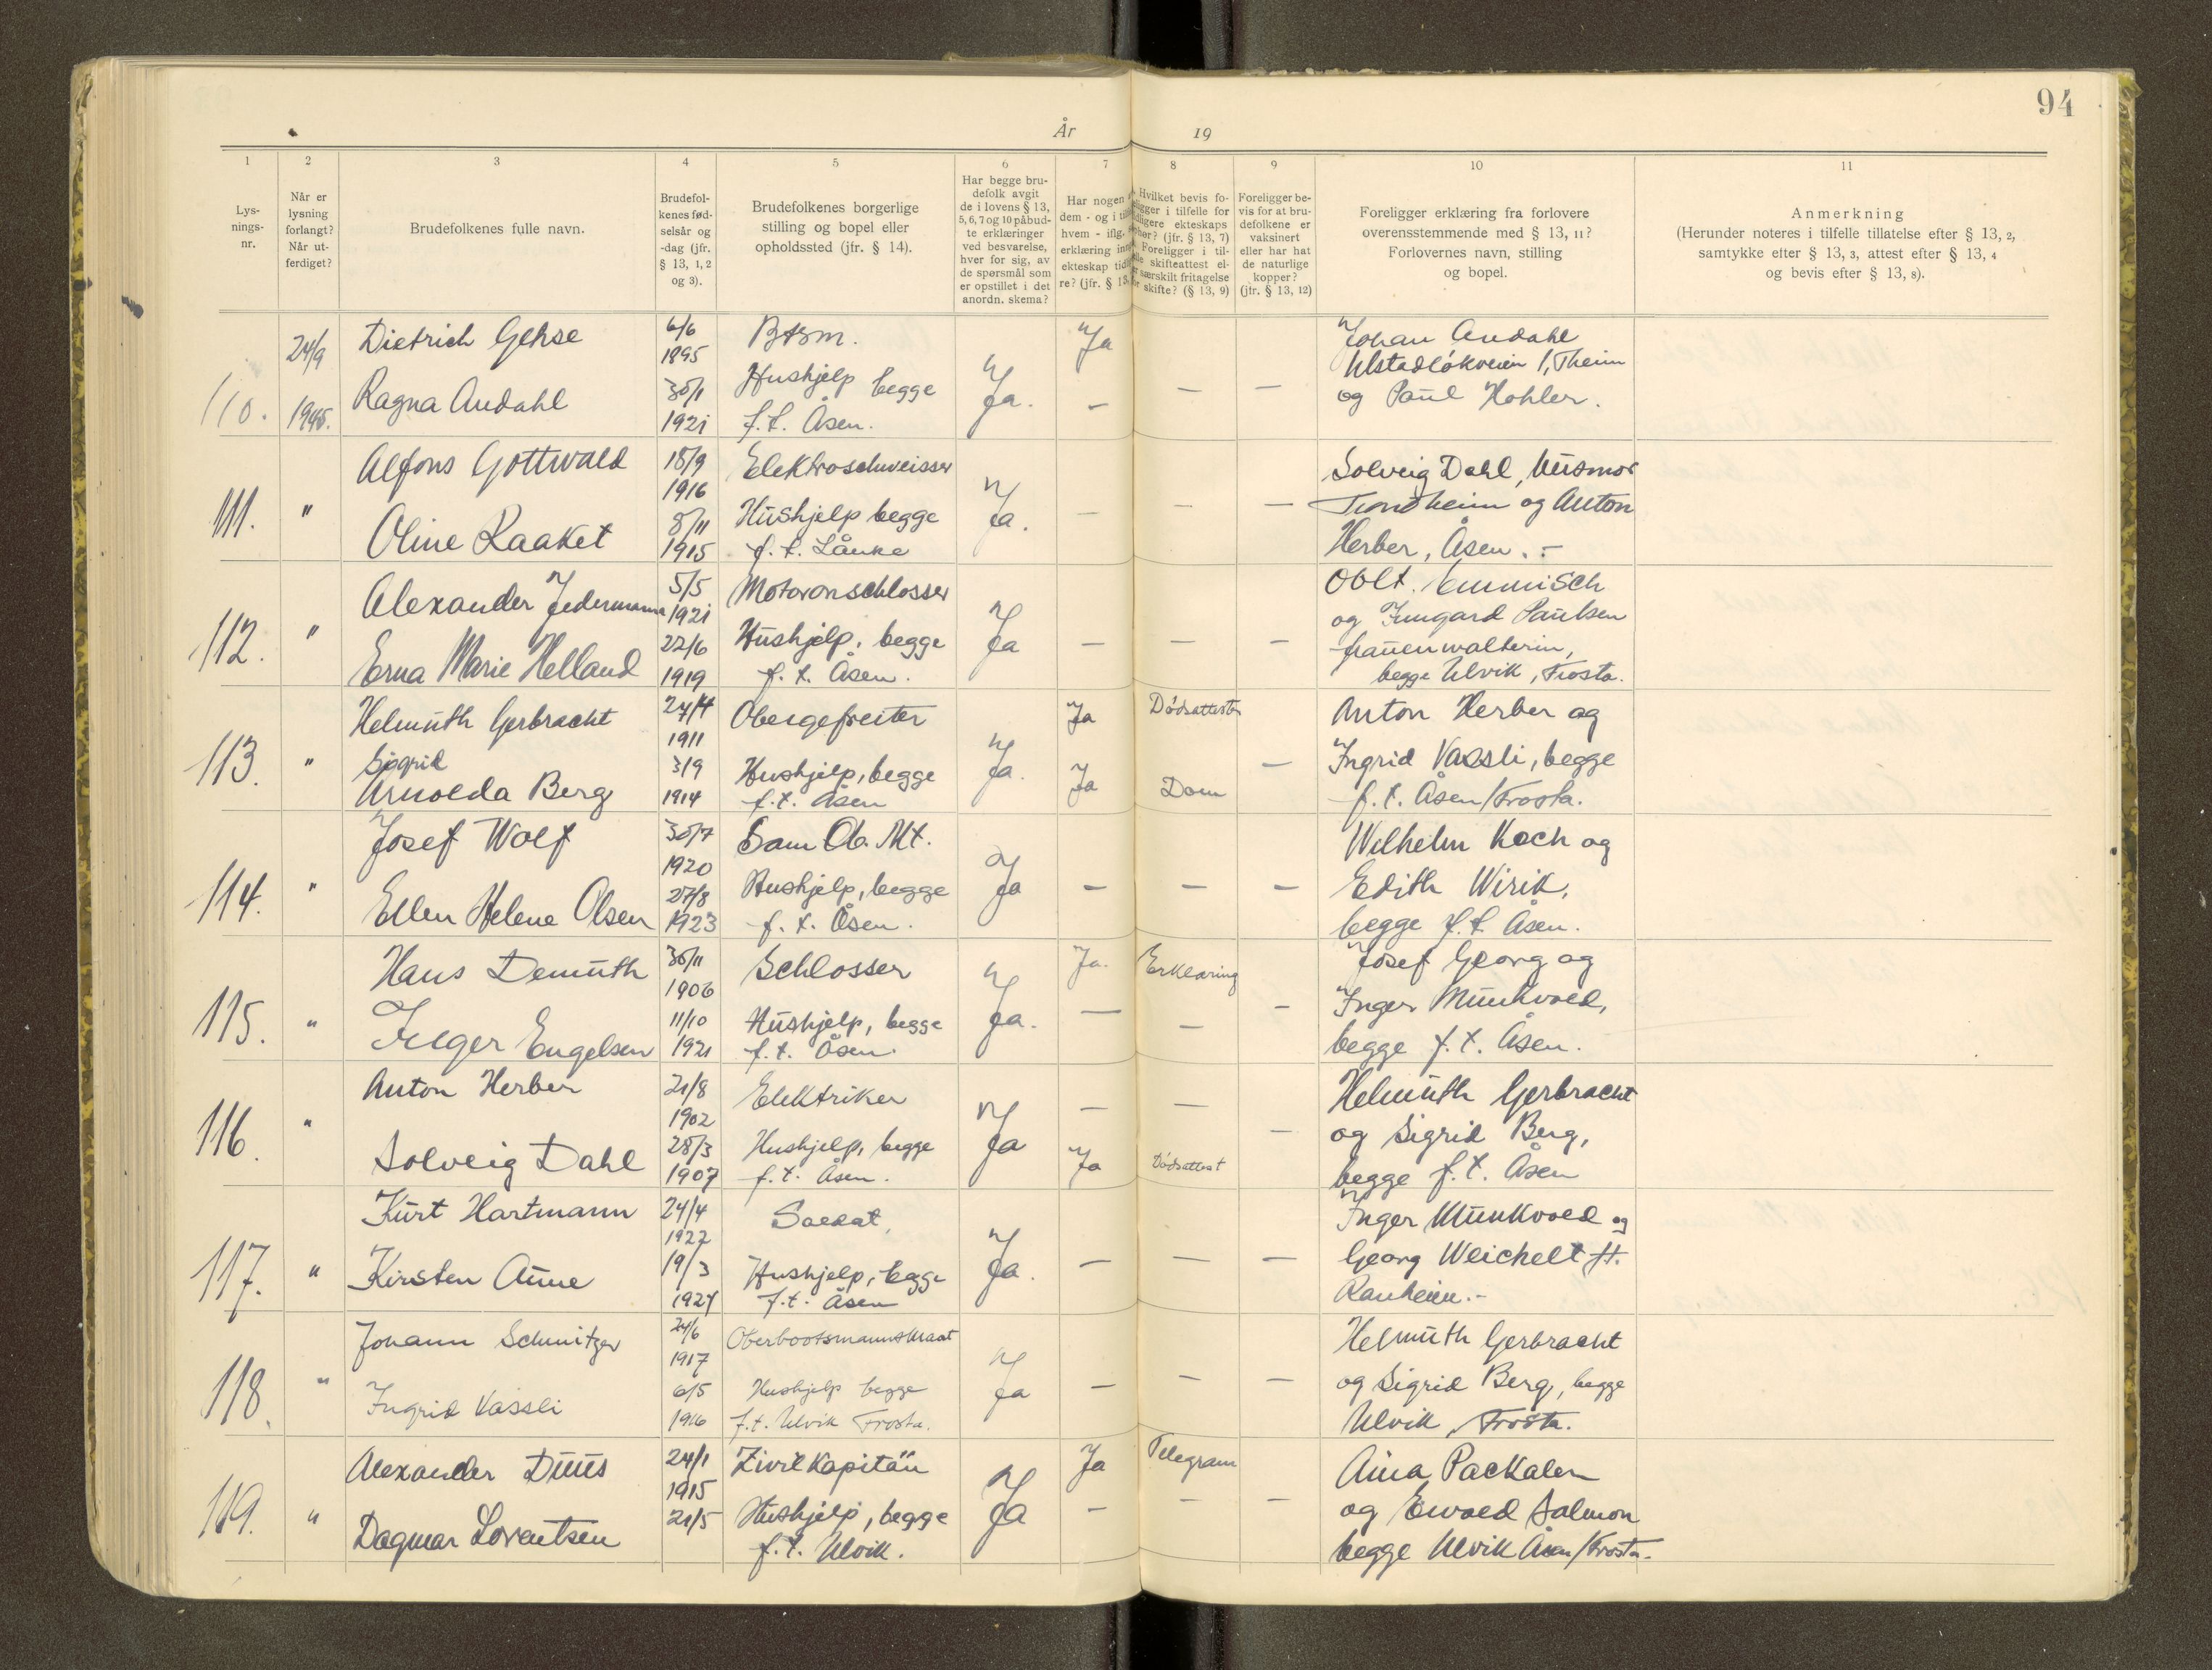 94
År 19
1 2 3 4 5 6 7 8 9 10 11
Lys-
nings-
nr.
Når er
lysning
forlangt?
Når ut-
ferdiget?
Brudefolkenes fulle navn.
Brudefol-
kenes fød-
selsår og
-dag (jfr.
§ 13, 1, 2
og 3).
Brudefolkenes borgerlige
stilling og bopel eller
opholdssted (jfr. § 14).
Har begge bru-
defolk avgit
de i lovens § 13,
5, 6, 7 og 10 påbud-
te erklæringer
ved besvarelse,
hver for sig, av
de spørsmål som
er opstillet i det
anordn. skema?
Har nogen
dem - og i
hvem - iflg.
erklæring
ekteskap
re? (jfr. §
Hvilket bevis fo-
religger i tilfelle for
tidligere ekteskaps
ophør? (jfr. § 13, 7)
Foreligger i til-
felle skifteattest el-
ler særskilt fritagelse
for skifte? (§ 13, 9)
Foreligger be-
vis for at bru-
defolkene er
vaksinert
eller har hat
de naturlige
kopper?
(jfr. § 13, 12)
Foreligger erklæring fra forlovere
overensstemmende med § 13, 11?
Forlovernes navn, stilling
og bopel.
Anmerkning
(Herunder noteres i tilfelle tillatelse efter § 13, 2,
samtykke efter § 13, 3, attest efter § 13, 4
og bevis efter § 13, 8).
110.
24/9
1945.
Dietrich Gehse
Ragna Andahl
6/6
1895
30/1
1921
Btsm.
Hushjelp begge
f.t. Åsen.
Ja.
Ja
-
-
-
Johan Andahl
Ulstadløkveien 1, Theim
og Paul Kohler.
111.
"
Alfons Gottwald
Oline Raaket
18/9
1916
8/11
1915
Elektroschweisser
Hushjelp begge
f.t. Lånke
Ja.
-
-
-
Solveig Dahl, Husmor
Trondheim og Anton
Herber, Åsen. -
112.
"
Alexander Jedermann
Erna Marie Helland
5/5
1921
22/6
1919
Motorenschlosser
Hushjelp, begge
f.t. Åsen.
Ja
-
-
-
Oblt. Emmisch
og Irmgard Paulsen
frauenwalterin,
begge Ulvik, Frosta.
113.
"
Helmuth Gerbracht
Sigrid
Arnolda Berg
24/4
1911
3/9
1914
Obergefreiter
Hushjelp, begge
f.t. Åsen
Ja.
Ja
Ja
Dødsattest
Dom
-
Anton Herber og
Ingrid Vassli, begge
f.t. Åsen/Frosta.
114.
"
Josef Wolf
Ellen Helene Olsen
30/7
1920
27/8
1923
Sam Ob. Mt.
Hushjelp, begge
f.t. Åsen.
Ja
-
-
-
Wilhelm Koch og
Edith Wirik,
begge f.t. Åsen.
115.
"
Hans Demuth
Inger Engelsen
30/11
1906
11/10
1921
Schlosser
Hushjelp, begge
f.t. Åsen.
Ja.
Ja.
-
Erklæring
-
-
Josef Georg og
Inger Munkvold,
begge f.t. Åsen.
116.
"
Anton Herber
Solveig Dahl
21/8
1902
28/3
1907
Elektriker
Hushjelp, begge
f.t. Åsen.
Ja
-
Ja
-
Dødsattest
-
Helmuth Gerbracht
og Sigrid Berg,
begge f.t. Åsen
117.
"
Kurt Hartmann
Kirsten Aune
24/4
1922
19/3
1927
Soldat,
Hushjelp, begge
f.t. Åsen
Ja.
-
-
-
Inger Munkvold og
Georg Weichelt ft.
Ranheim. -
118.
"
Johann Schmitzer
Ingrid Vassli
24/6
1917
6/5
1916
Oberbootsmannsmaat
Hushjelp begge
f.t. Ulvik Frosta.
Ja
-
-
-
Helmuth Gerbracht
og Sigrid Berg, begge
Ulvik, Frosta.
119.
"
Alexander Duus
Dagmar Lorentsen
24/1
1915
21/5
Zivilkapitän
Hushjelp, begge
f.t. Ulvik.
Ja
Ja
-
Telegram
-
-
Aina Packalen
og Ewald Salmon
begge Ulvik Åsen/Frosta.